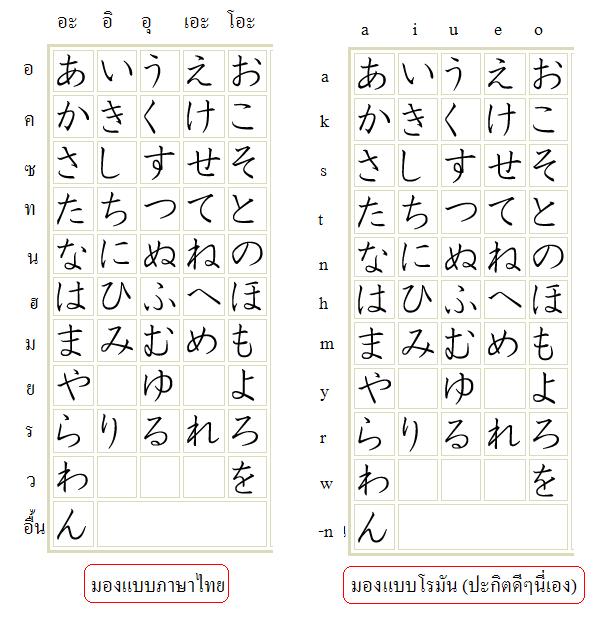 อะ อิ อุ เอะ โอะ
อ あ い う え お
ค か き く け こ
ซ さ し す せ そ
ท た ち つ て と
น な に ぬ ね の
ฮ は ひ ふ へ ほ
ม ま み む め も
ย や ゆ よ
ร ら り る れ ろ
ว わ を
อื้น ん
มองแบบภาษาไทย
a i u e o
a あ い う え お
k か き く け こ
s さ し す せ そ
t た ち つ て と
n な に ぬ ね の
h は ひ ふ へ ほ
m ま み む め も
y や ゆ よ
r ら り る れ ろ
w わ を
-n ん
มองแบบโรมัน (ปะกิตดีๆนี่เอง)